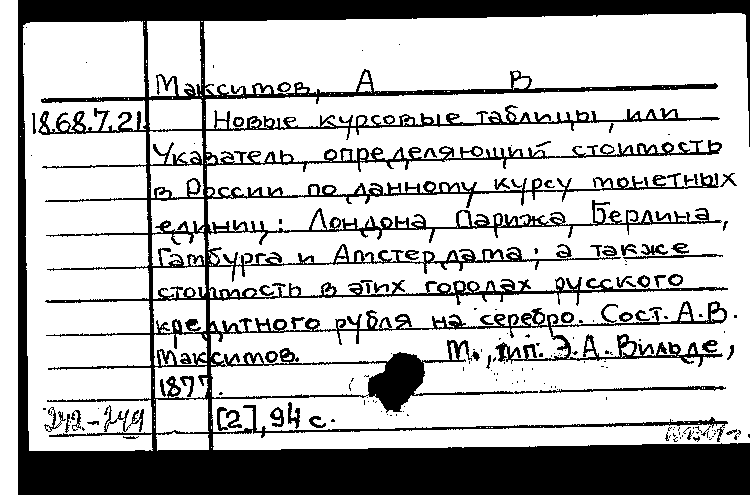 Максимов, А В
18.68.7.21. Новые курсовые таблицы, или
Указатель, определяющий стоимость
в России по данному курсу монетных
единиц: Лондона, Парижа, Берлина,
Гамбурга и Амстердама; а также
стоимость в этих городах русского
кредитного рубля на серебро. Сост. А.В.
Максимов. М., тип. Э.А. Вильде,
1877.
242-249 [2], 94 с.